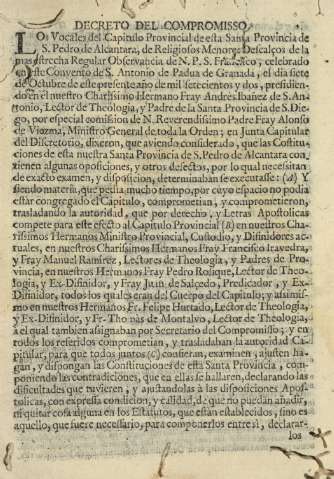 DECRETO DEL COMPROMISSO.
LOs Vocales del Capitulo Provincial de esta Santa Provincia de
S. Pedro de Alcantara, de Religiosos Menores Descalços de la
mas estrecha Regular Observancia de N. P. S. Francisco, celebrado
en este Convento de S. Antonio de Padua de Granada, el dia siete
de Octubre de este presente año de mil setecientos y dos, presidien-
do en él nuestro Charissimo Hermano Fray Andrès Ibañez de S. An-
tonio, Lector de Theologia, y Padre de la Santa Provincia de S. Die-
go, por especial comission de N. Reverendissimo Padre Fray Alonso
de Viozma, Ministro General de toda la Orden; en Junta Capitular
del Discretorio, dixeron, que aviendo considerado, que las Costitu-
ciones de esta nuestra Santa Provincia de S. Pedro de Alcantara con-
tienen algunas oposiciones, y otros defectos, por lo qual necesitan
de exacto examen, y disposicion, determinaban se executasse: (A) Y
siendo materia, que pedia mucho tiempo, por cuyo espacio no podia
estar congregado el Capitulo, comprometian, y comprometieron,
trasladando la autoridad, que por derecho, y Letras Apostolicas
compete para este efecto al Capitulo Provincial (B) en nuestros Cha-
rissimos Hermanos Ministro Provincial, Custodio, y Difinidores ac-
tuales, en nuestros Charissimos Hermanos Fray Francisco Lavedra,
y Fray Manuel Ramirez, Lectores de Theologia, y Padres de Pro-
vincia, en nuestros Hermanos Fray Pedro Rosique, Lector de Theo-
logia, y Ex-Difinidor, y Fray Juan de Salcedo, Predicador, y Ex-
Difinidor, todos los quales eran del Cuerpo del Capitulo; y assimis-
mo en nuestros Hermanos Fr. Felipe Hurtado, Lector de Theologia,
y Ex-Difinidor, y Fr. Thomàs de Montalvo, Lector de Theologia,
à el qual tambien assignaban por Secretario del Compromisso; y en
todos los referidos comprometian, y trasladaban la autoridad Ca-
pitular, para que todos juntos (C) confieran, examinen, ajusten, ha-
gan, y dispongan las Constituciones de esta Santa Provincia, com-
poniendo las contradiciones, que en ellas se hallaren, declarando las
dificultades que tuvieren, y ajustandolas à las disposiciones Apos-
tolicas, con expressa condicion, y calidad, de que no puedan añadir,
ni quitar cosa alguna en los Estatutos, que estàn establecidos, sino es
aquello, que fuere necessario, para componerlos entre sì, declarar-
los